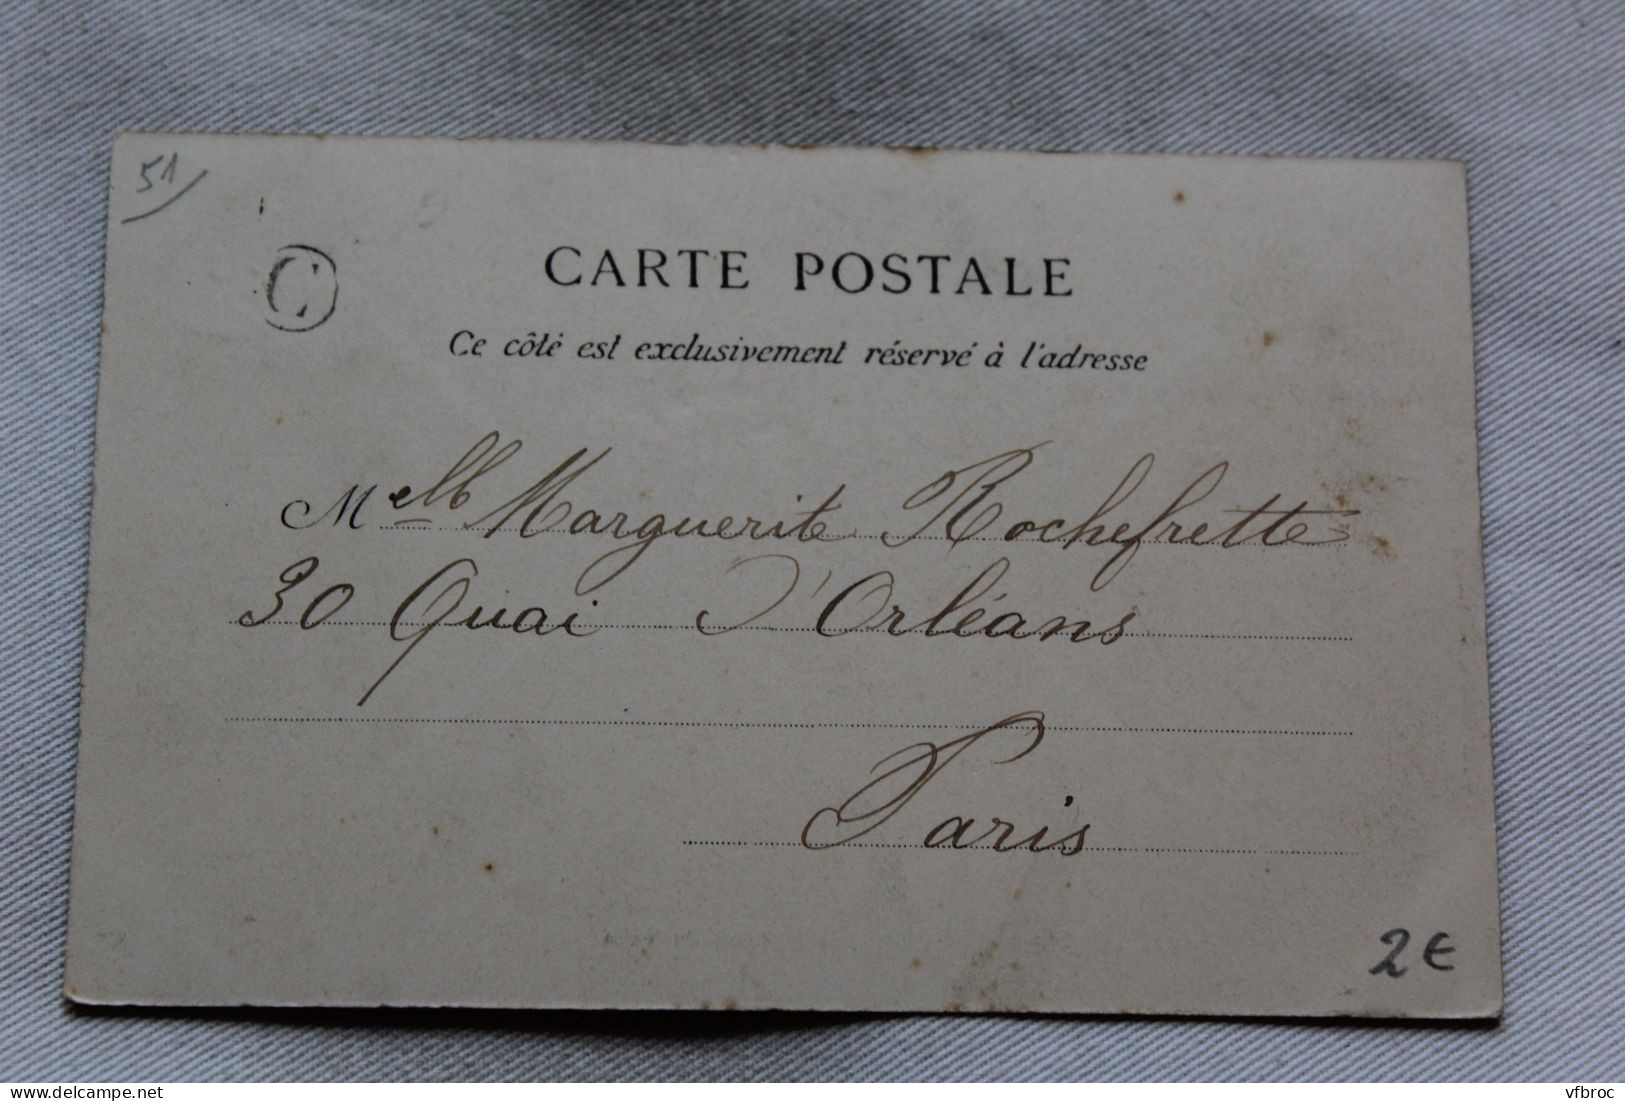 51
C
CARTE POSTALE
Ce côté est exclusivement réservé à l'adresse
Melle Marguerite Rochefrette
30 Quai d'Orléans
Paris
2€
© delcampe.net
vfbroc